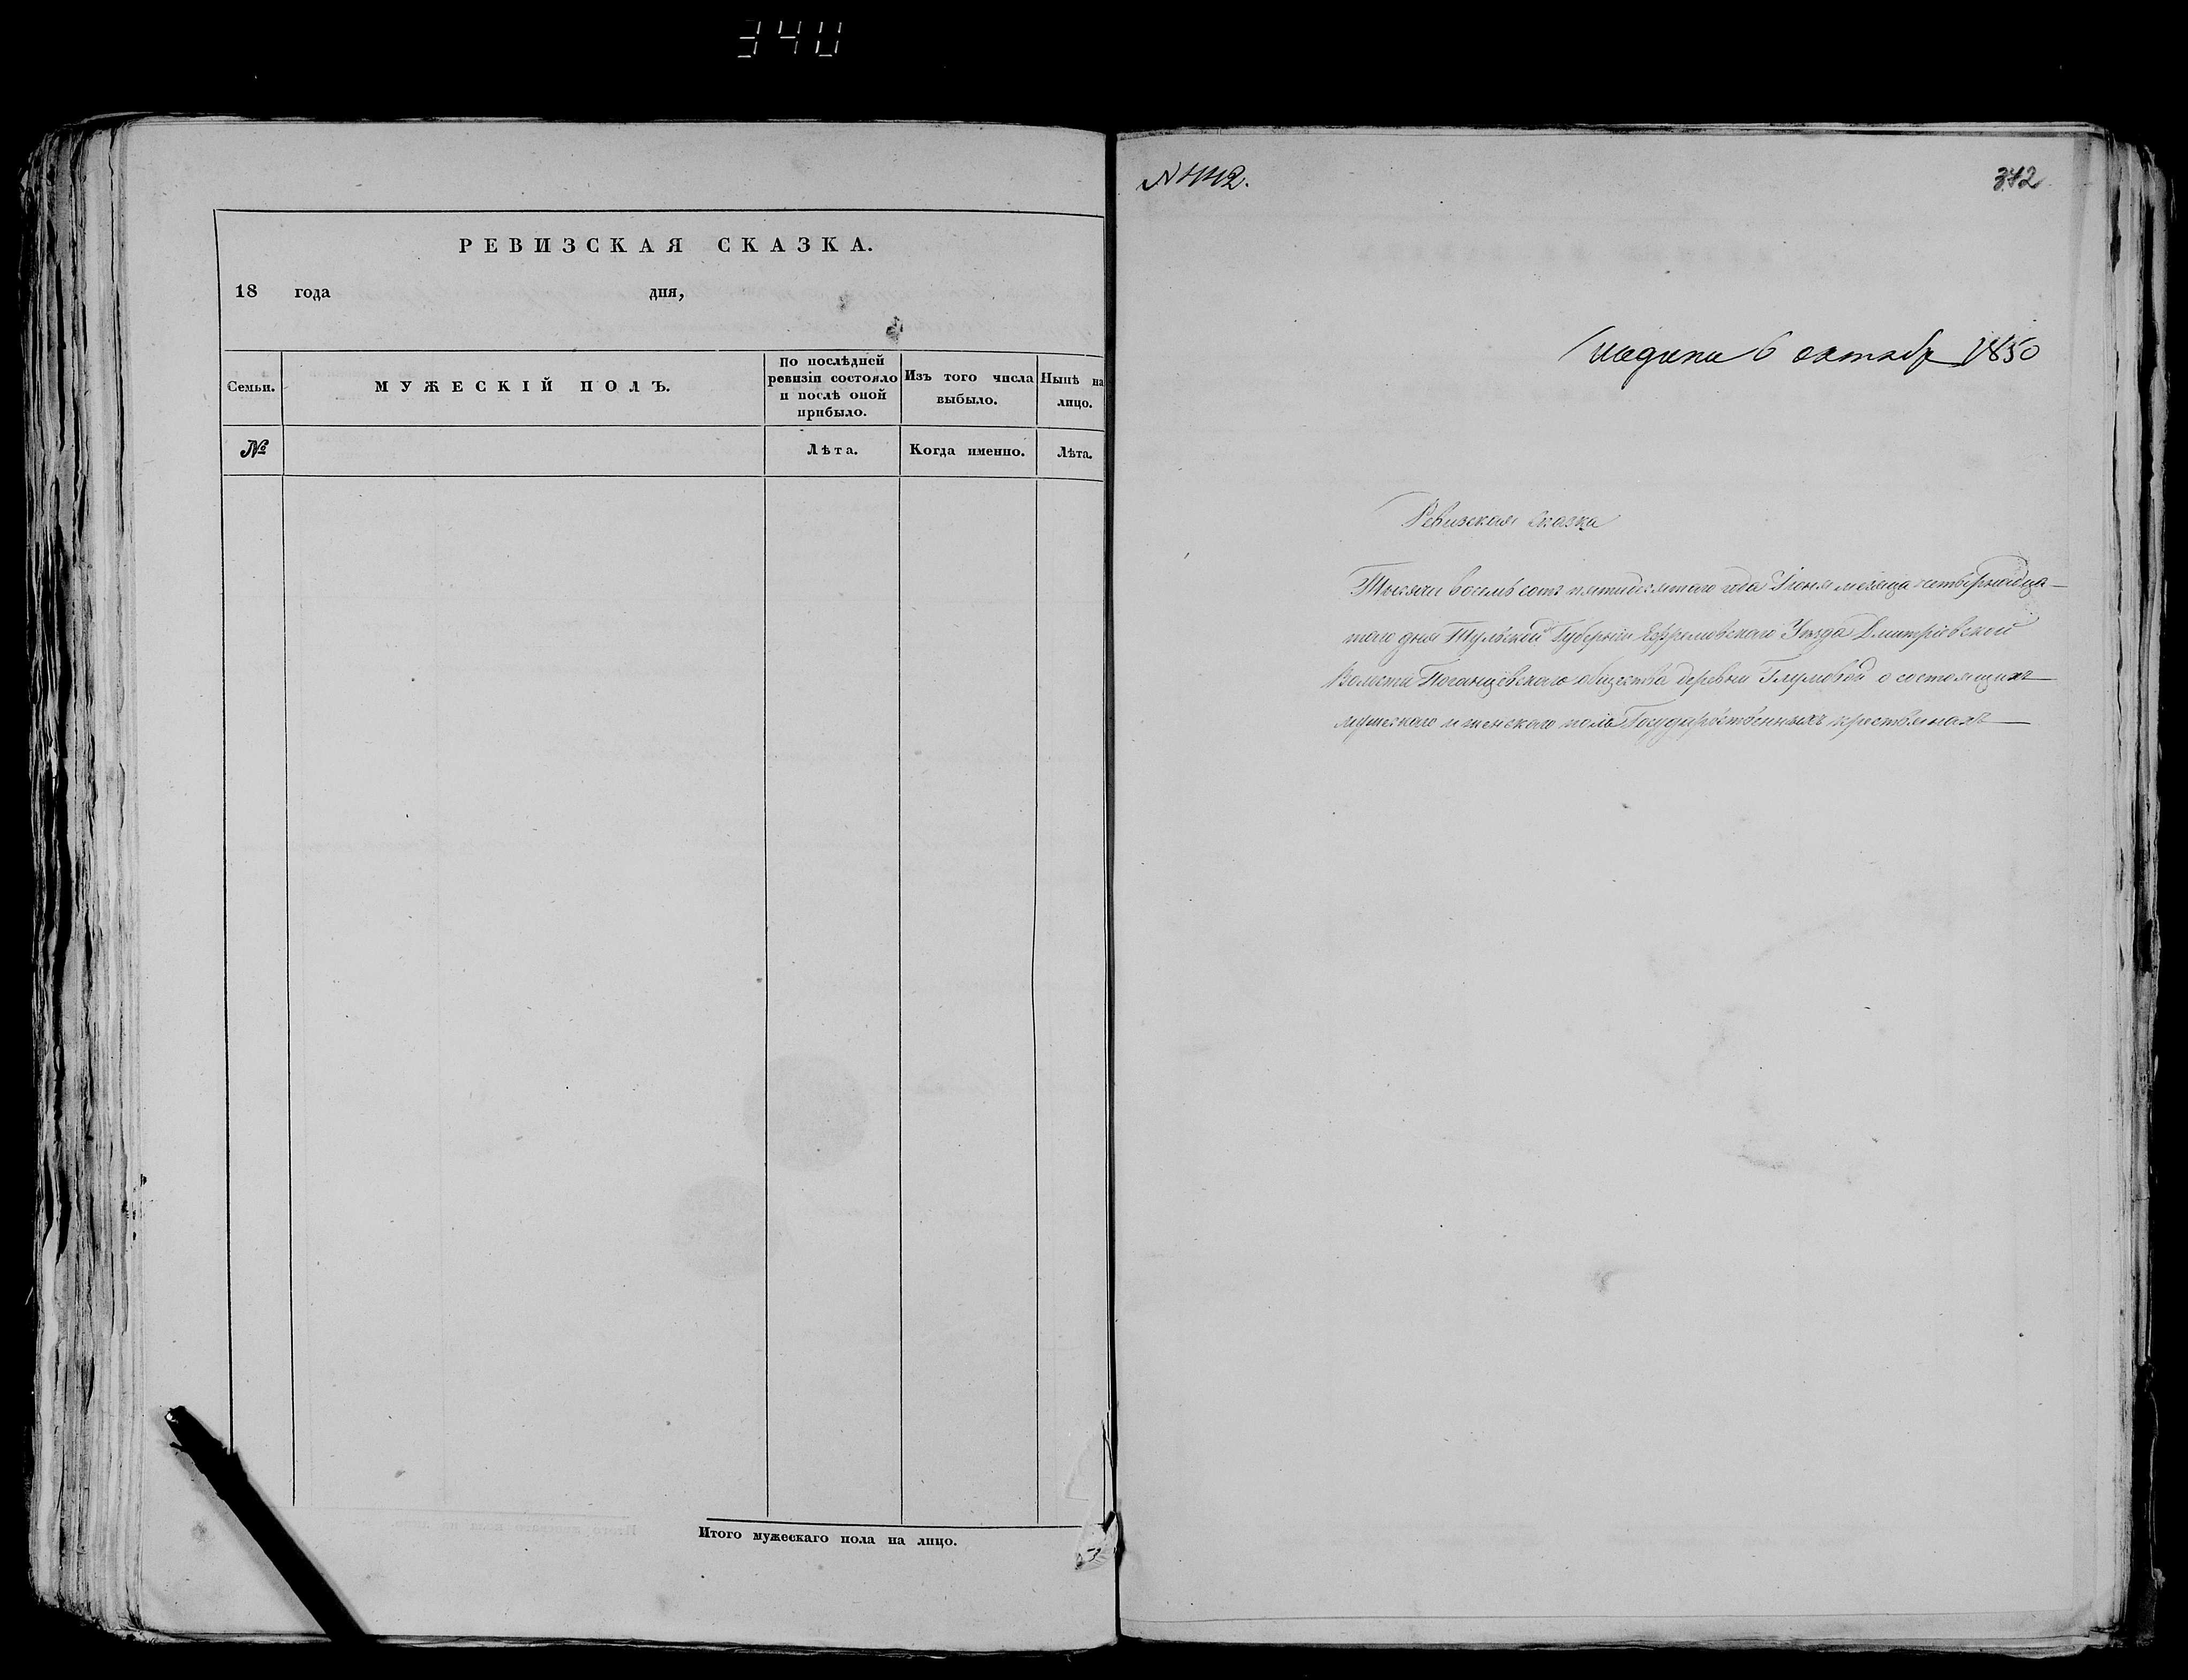 340
РЕВИЗСКАЯ СКАЗКА.
18 года дня,
Семьи.
МУЖЕСКІЙ ПОЛЪ.
По послѣдней
ревизіи состояло
и послѣ оной
прибыло.
Изъ того числа
выбыло.
Нынѣ на
лицо.
№
Лѣта.
Когда именно.
Лѣта.
Итого мужескаго пола на лицо.
342
6 октябр 1850
Ревизская сказка
Тысяча восемьсотъ пятидесятаго года Іюня месяца четырнадца
таго дня Тульской Губерніи Ефремовскаго Уѣзда Дмитріевской
Волости общества деревни Глумовой о состоящихъ
мужескаго и женскаго пола Государственныхъ крестьянахъ